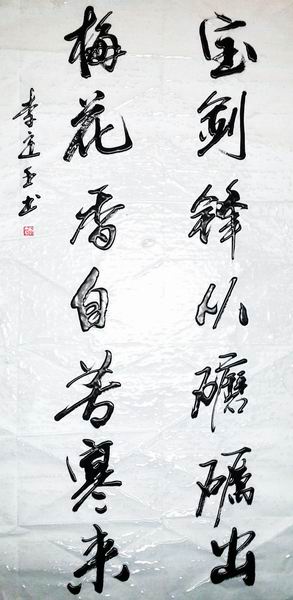 宝剑锋从磨砺出
梅花香自苦寒来
李玉书